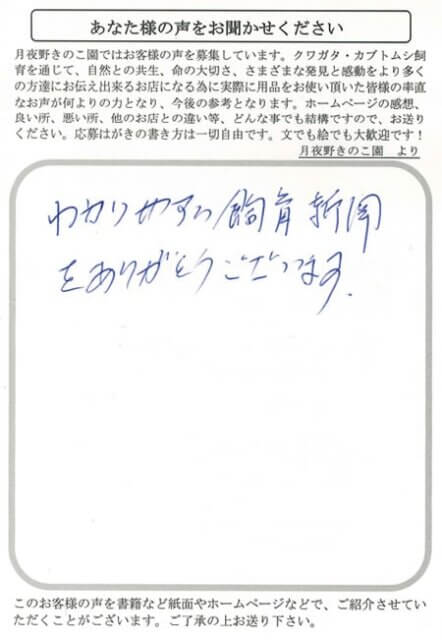 あなた様の声をお聞かせください
月夜野きのこ園ではお客様の声を募集しています。クワガタ・カブトムシ飼
育を通じて、自然との共生、命の大切さ、さまざまな発見と感動をより多く
の方達にお伝え出来るお店になる為に実際に用品をお使い頂いた皆様の率直
なお声が何よりの力となり、今後の参考となります。ホームページの感想、
良い所、悪い所、他のお店との違い等、どんな事でも結構ですので、お送り
ください。応募はがきの書き方は一切自由です。文でも絵でも大歓迎です！
月夜野きのこ園　より
わかりやすい飼育新聞
をありがとうございます.
このお客様の声を書籍など紙面やホームページなどで、ご紹介させていた
ただくことがございます。ご了承の上お送り下さい。